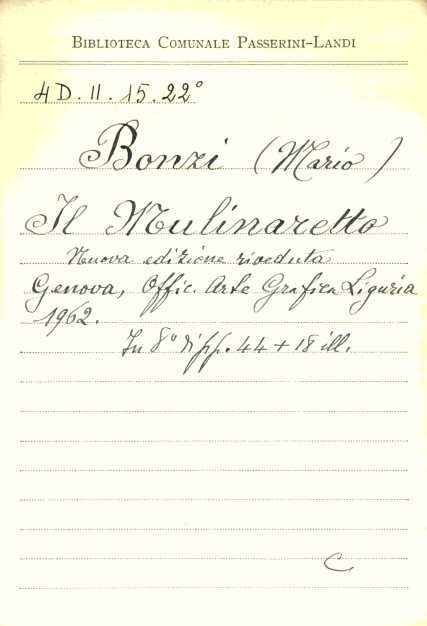 BIBLIOTECA COMUNALE PASSERINI-LANDI
4 D. II. 15. 22°
Bonzi (Mario)
Il Mulinaretto
Nuova edizione riveduta
Genova, Offic. Arte Grafica Liguria
1962.
In 8° di pp. 44 + 18 ill.
C